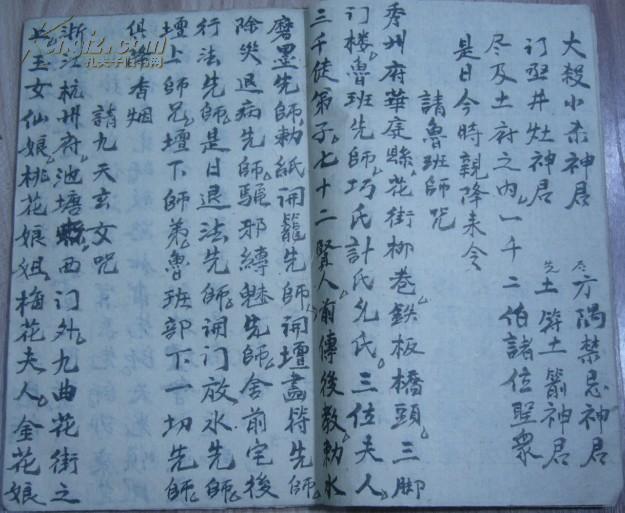 大殺小杀神君 方隅禁忌神君
订墅井灶神君 土符土箭神君
尽及土府之内一千二伯諸位聖衆
是日今時親降来令
請魯班師咒
秀州府華庭縣花街柳巷鉄板橋頭三脚
门楼魯班先師巧氏計氏允氏三位夫人
三千徒弟子七十二賢人前傳後教勅水
磨墨先師勅紙開籠先師開壇畵符先師
除災退病先師駈邪縛魅先師舍前宅後
行法先師是日退法先師開门放水先師
壇上師兄壇下師弟魯班部下一切先師
俱降香烟
請九天玄女咒
浙江杭州府池塘縣西门外九曲花街之
上玉女仙娘桃花娘姐梅花夫人金花娘
kongfz.com
孔夫子旧书网